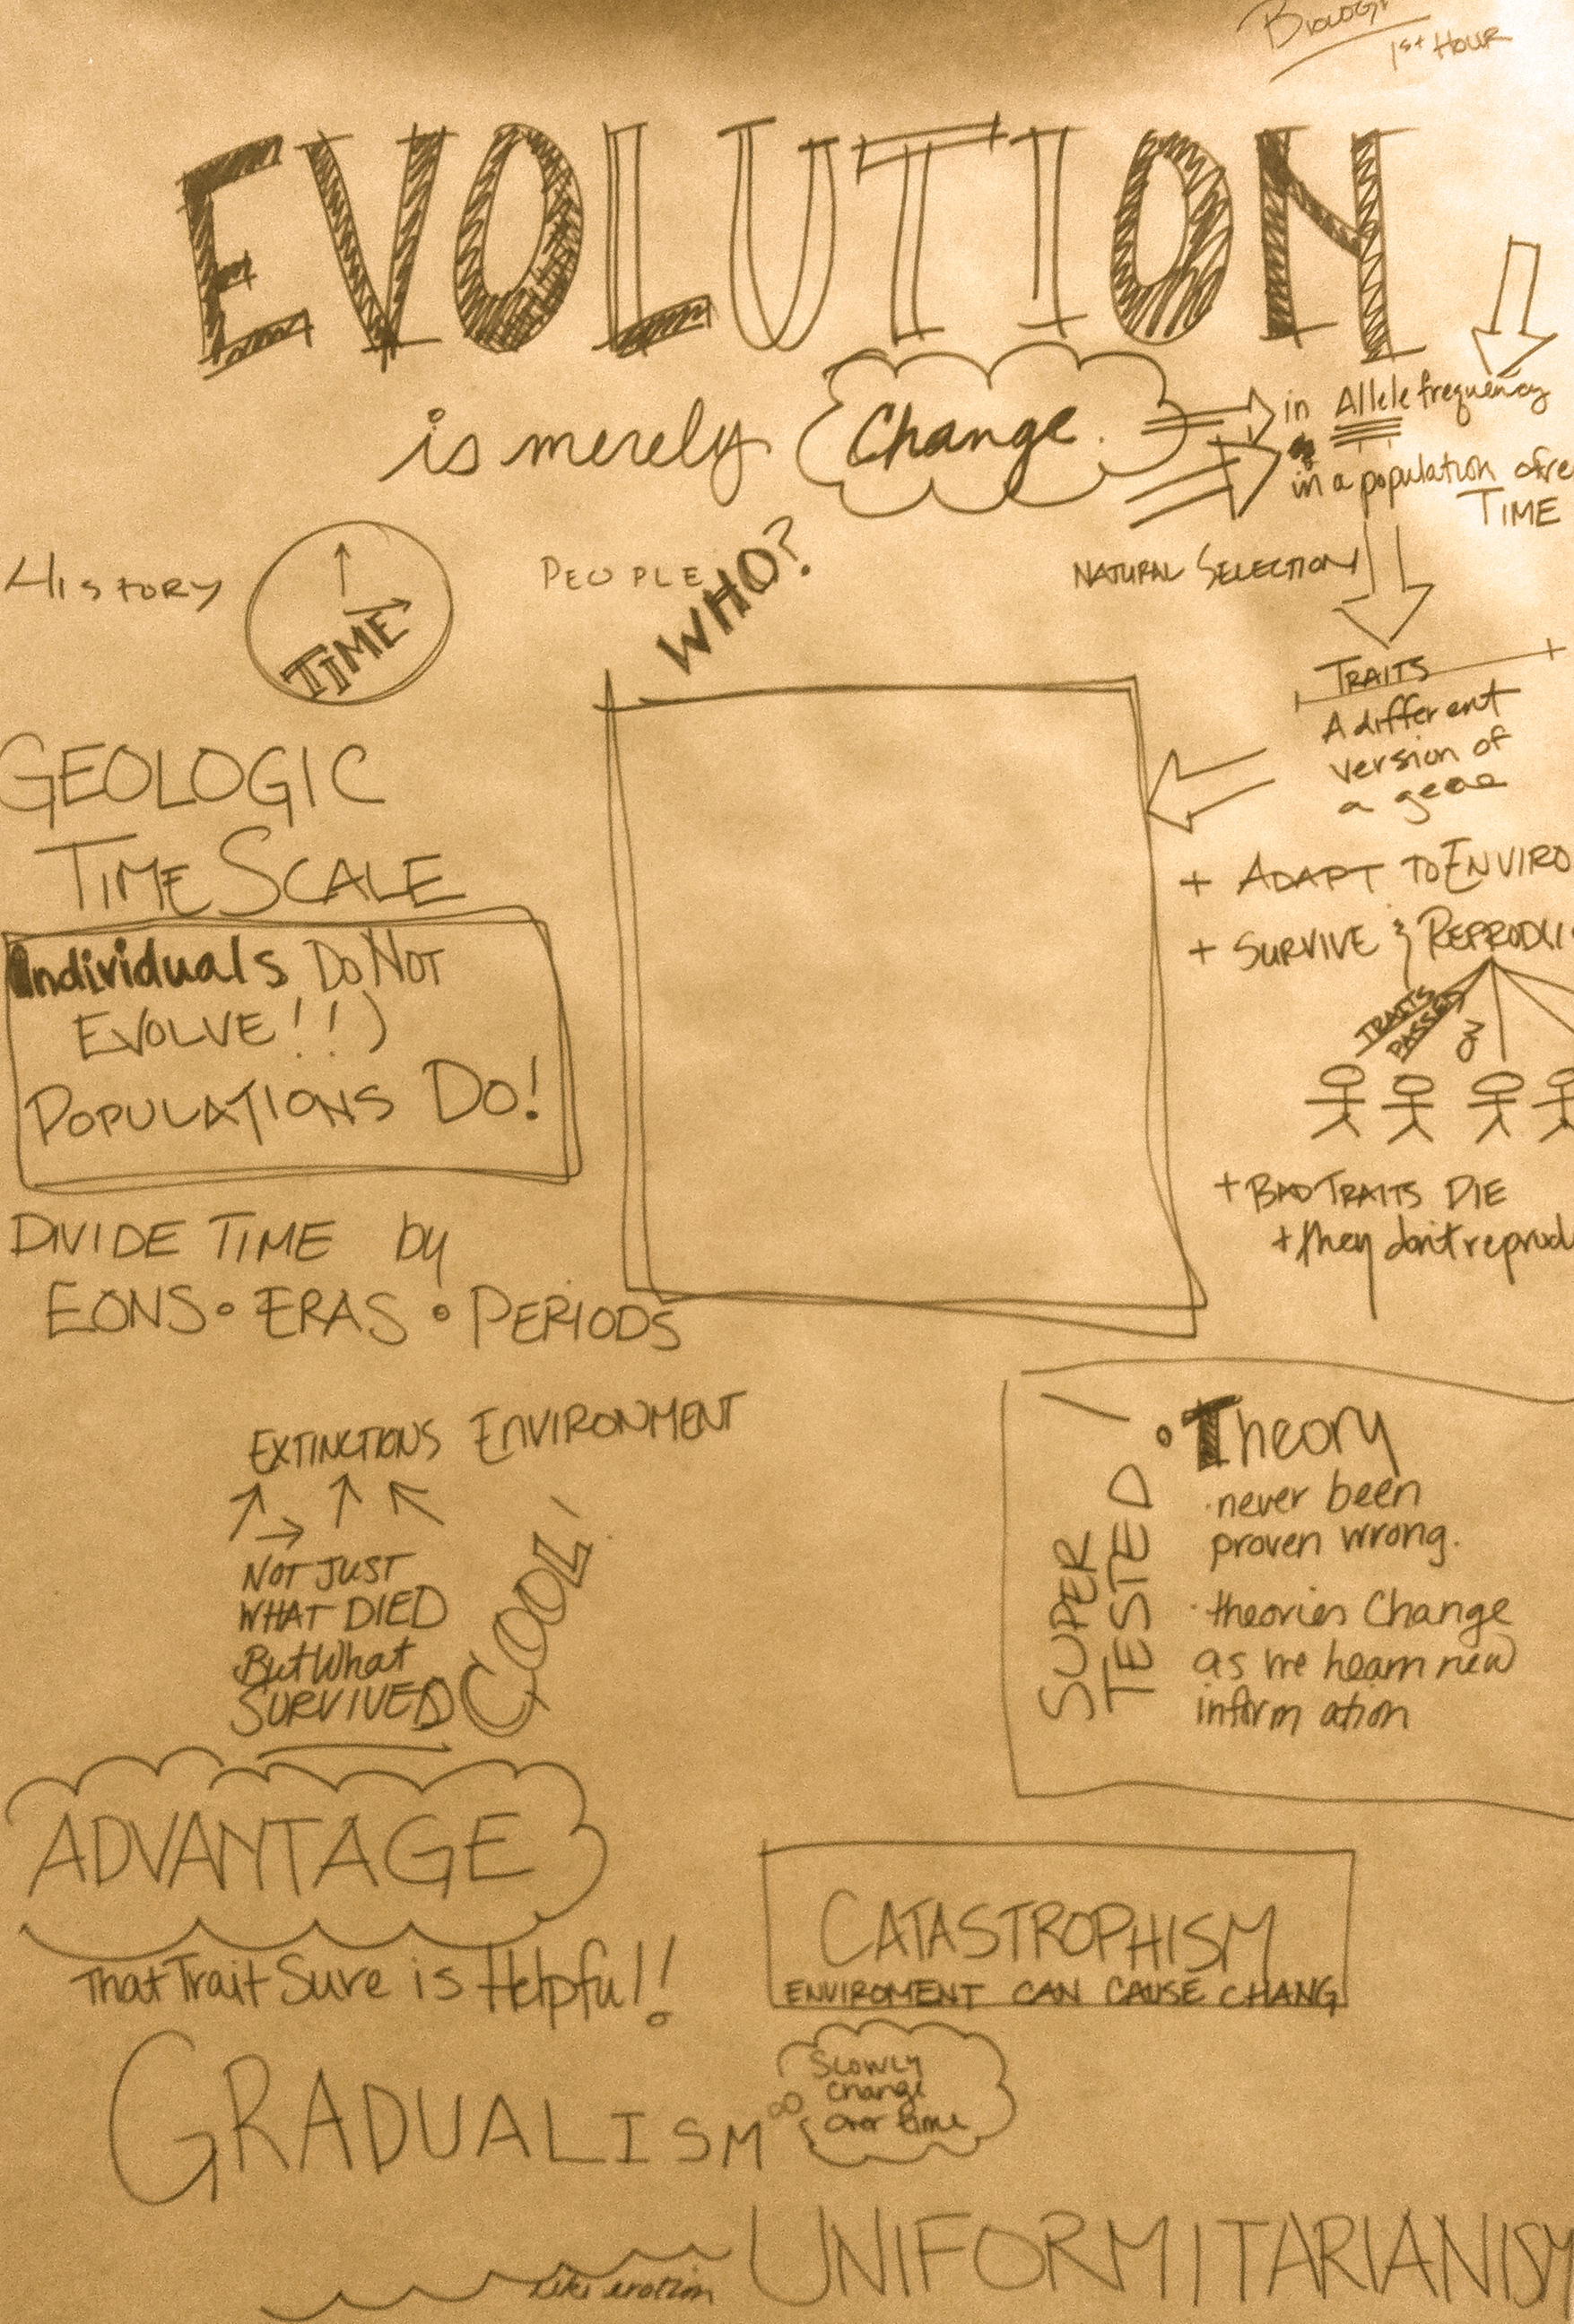 Biology
1st Hour
EVOLUTION
is merely Change.
in Allele frequency
in a population
TIME
NATURAL SELECTION
TRAITS
A different
version of
a gene
+ ADAPT TO ENVIRO
+ SURVIVE & REPRODU
TRAITS
PASSED
ON
+ BAD TRAITS DIE
+ they don't reprod
HISTORY
TIME
PEOPLE
WHO?
GEOLOGIC
TIME SCALE
Individuals DO NOT
EVOLVE!!)
POPULATIONS DO!
DIVIDE TIME by
EONS • ERAS • PERIODS
EXTINCTIONS ENVIRONMENT
NOT JUST
WHAT DIED
But What
SURVIVED
COOL!
SUPER
TESTED
• Theory
· never been
proven wrong.
· theories Change
as we learn new
information
ADVANTAGE
That Trait Sure is Helpful!
CATASTROPHISM
ENVIROMENT CAN CAUSE CHANG
GRADUALISM
Slowly
change
over time
UNIFORMITARIANISM
Like erotion